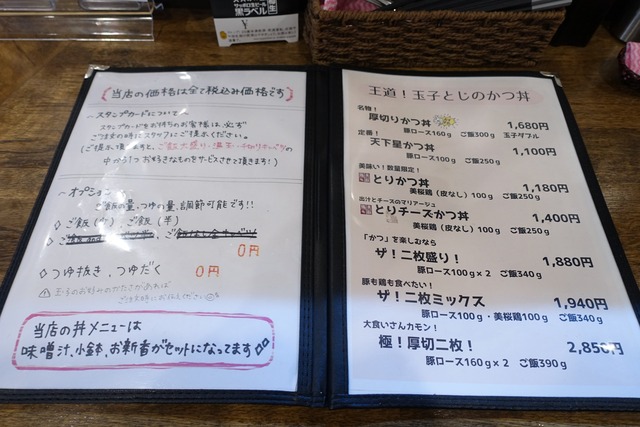 黒ラベル
(当店の価格は全て税込み価格です)
~スタンプカードについて~
スタンプカードをお持ちのお客様は、必ず
ご注文の時にスタッフにご提示ください。
(ご提示頂けますと、ご飯大盛り・温玉・千切りキャベツの
中から1つお好きなものをサービスさせて頂きます!)
~オプション~
ご飯の量、つゆの量、調節可能です!!
◇ご飯(小)、ご飯(半)
0円
◇つゆ抜き、つゆだく 0円
⚠玉子のお好みのかたさがあれば
ご注文時にお伝えください
当店の丼メニューは
味噌汁、小鉢、お新香がセットになってます◇◇
王道!玉子とじのかつ丼
名物!
厚切りかつ丼 1,680円
豚ロース160g ご飯300g 玉子ダブル
定番!
天下星かつ丼 1,100円
豚ロース100g ご飯250g
美味い!数量限定!
とりかつ丼 1,180円
美桜鶏(皮なし)100g ご飯250g
出汁とチーズのマリアージュ
とりチーズかつ丼 1,400円
美桜鶏(皮なし)100g ご飯250g
「かつ」を楽しむなら
ザ!二枚盛り! 1,880円
豚ロース100g×2 ご飯340g
豚も鶏も食べたい!
ザ!二枚ミックス 1,940円
豚ロース100g・美桜鶏100g ご飯340g
大食いさんカモン!
極!厚切二枚! 2,850円
豚ロース160g×2 ご飯390g